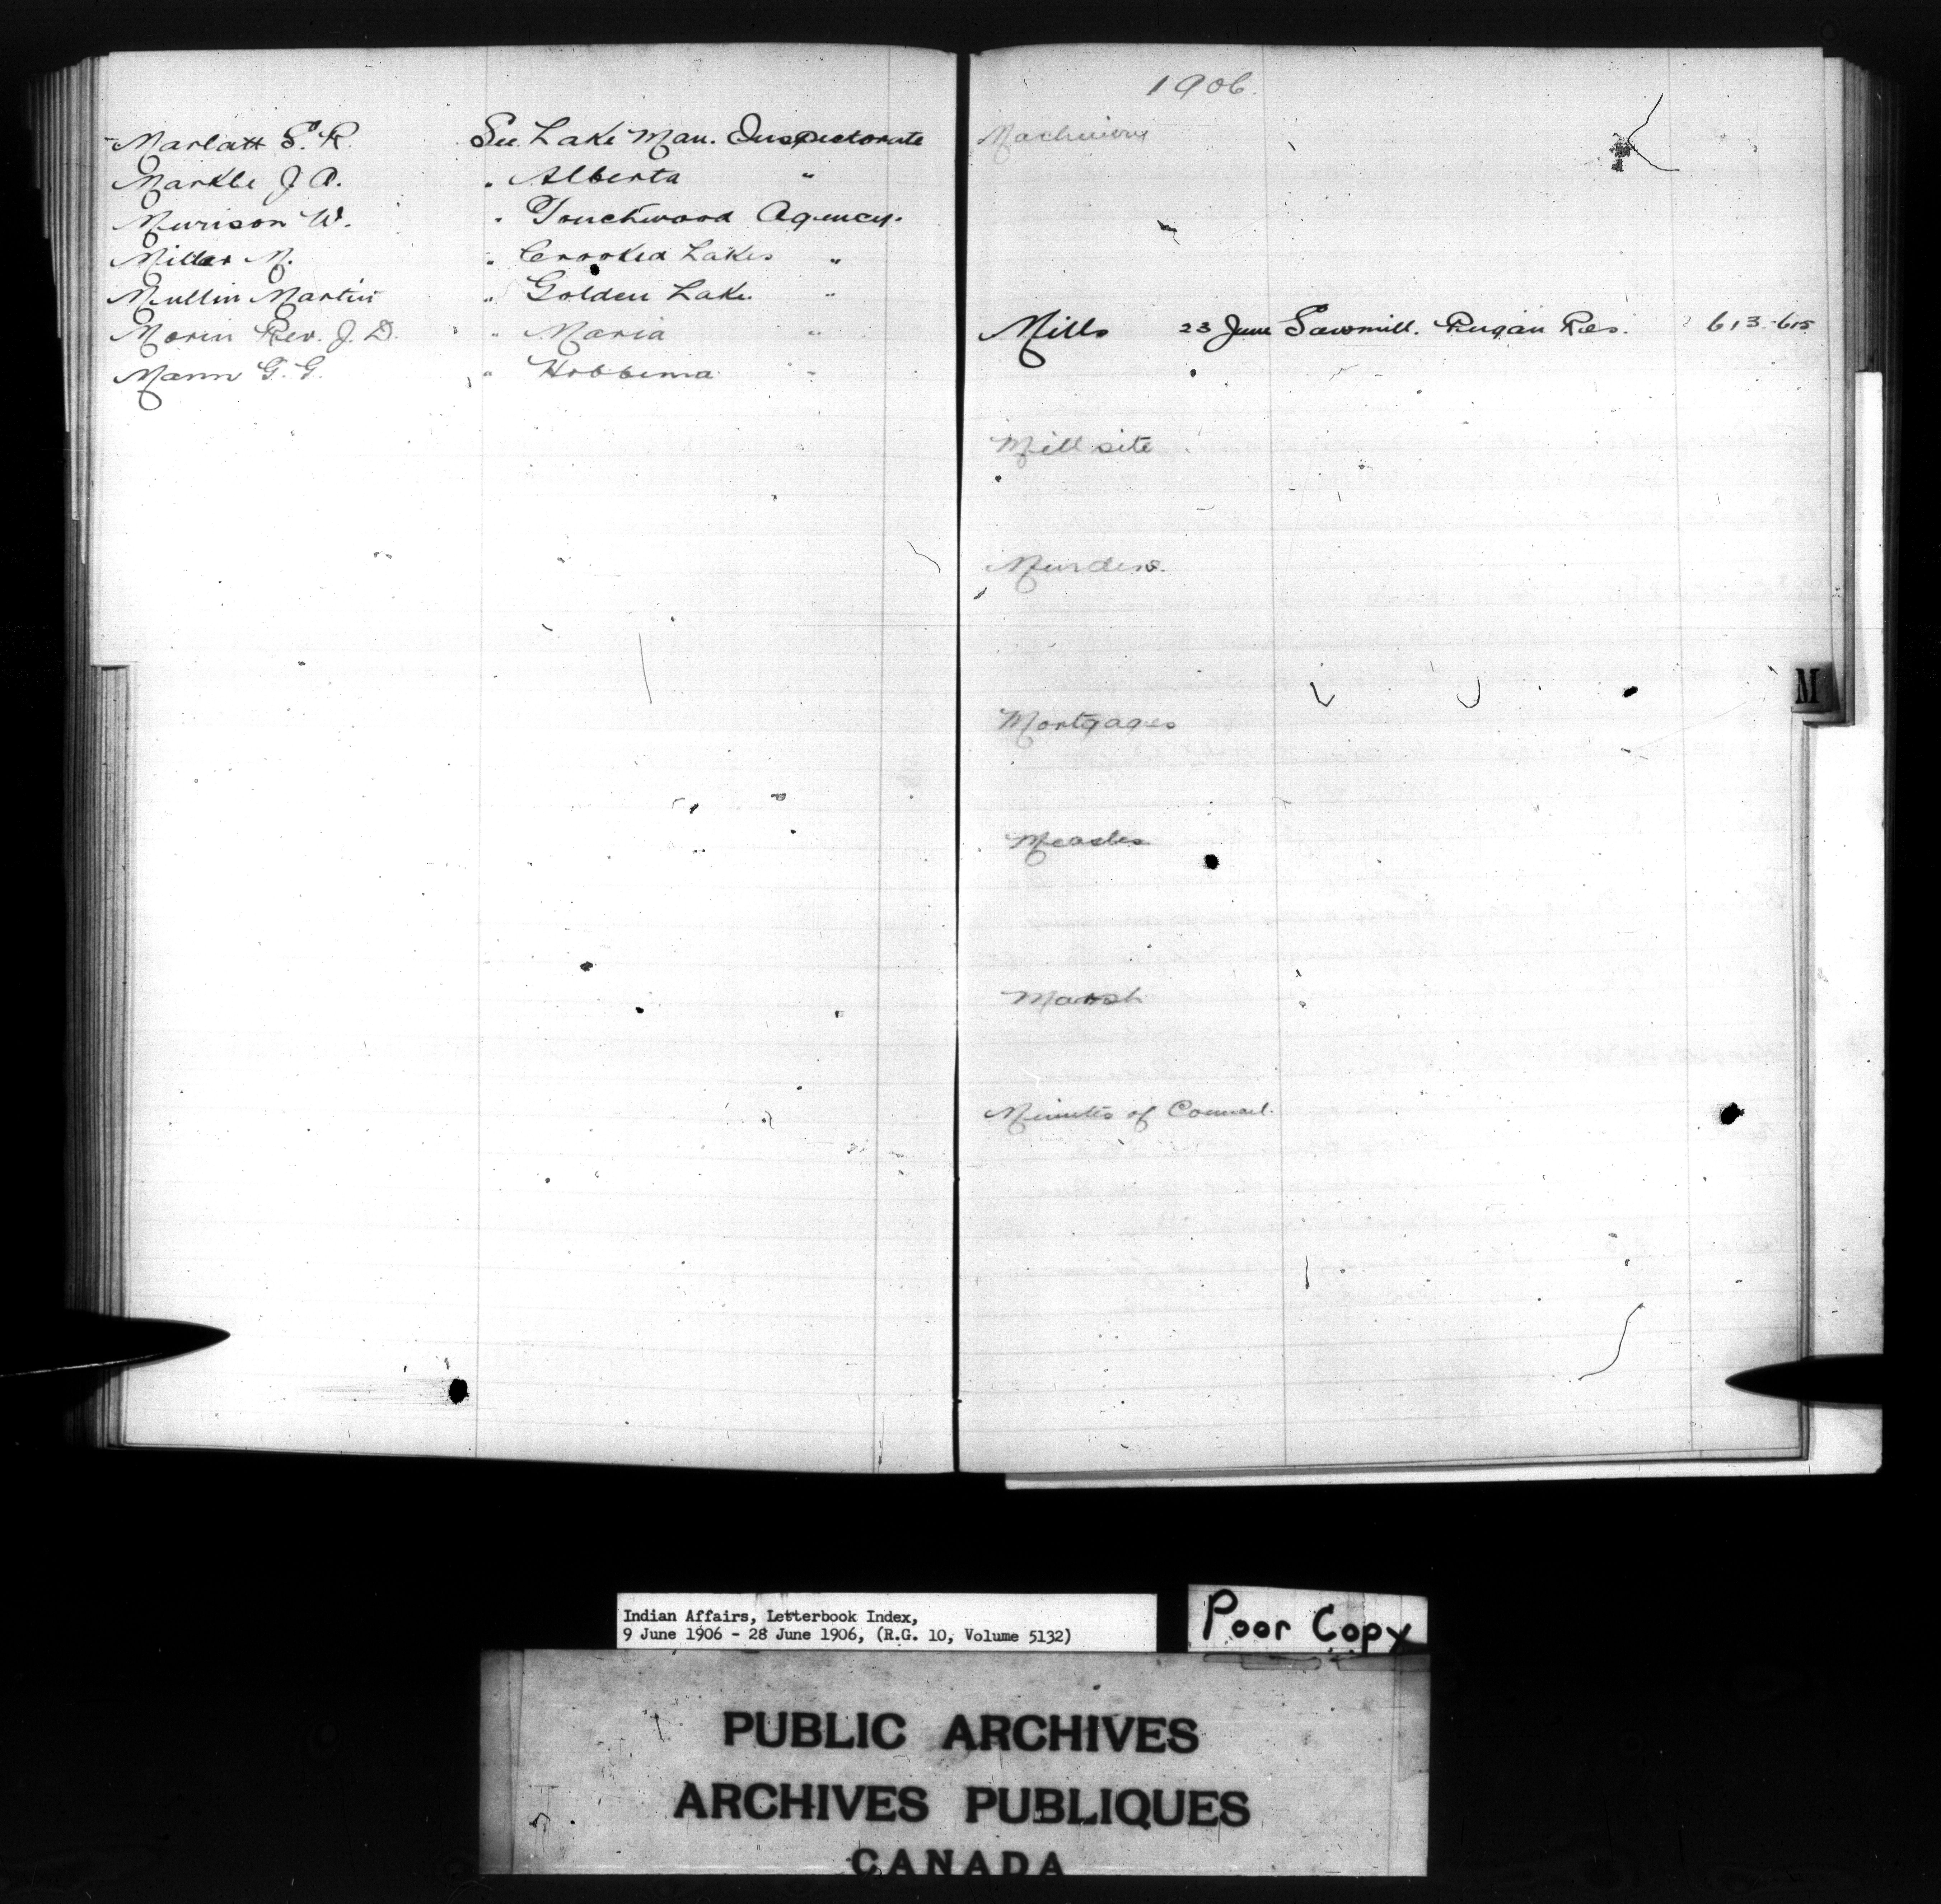 Marlatt S. R. See Lake Man. Inspectorate
Markle J. A. " Alberta "
Murison W. " Touchwood Agency.
Miller M. " Crooked Lakes "
Mullin Martin " Golden Lake "
Morin Rev. J. D. " Maria "
Mann G. G. " Hobbema "
1906.
Machinery
Mills 23 June Sawmill. Res. 613-615
Mill site
Murders.
M
Mortgages
Measles
Marsh
Minutes of Council.
Indian Affairs, Letterbook Index,
9 June 1906 - 28 June 1906, (R.G. 10, Volume 5132)
Poor Copy
PUBLIC ARCHIVES
ARCHIVES PUBLIQUES
CANADA